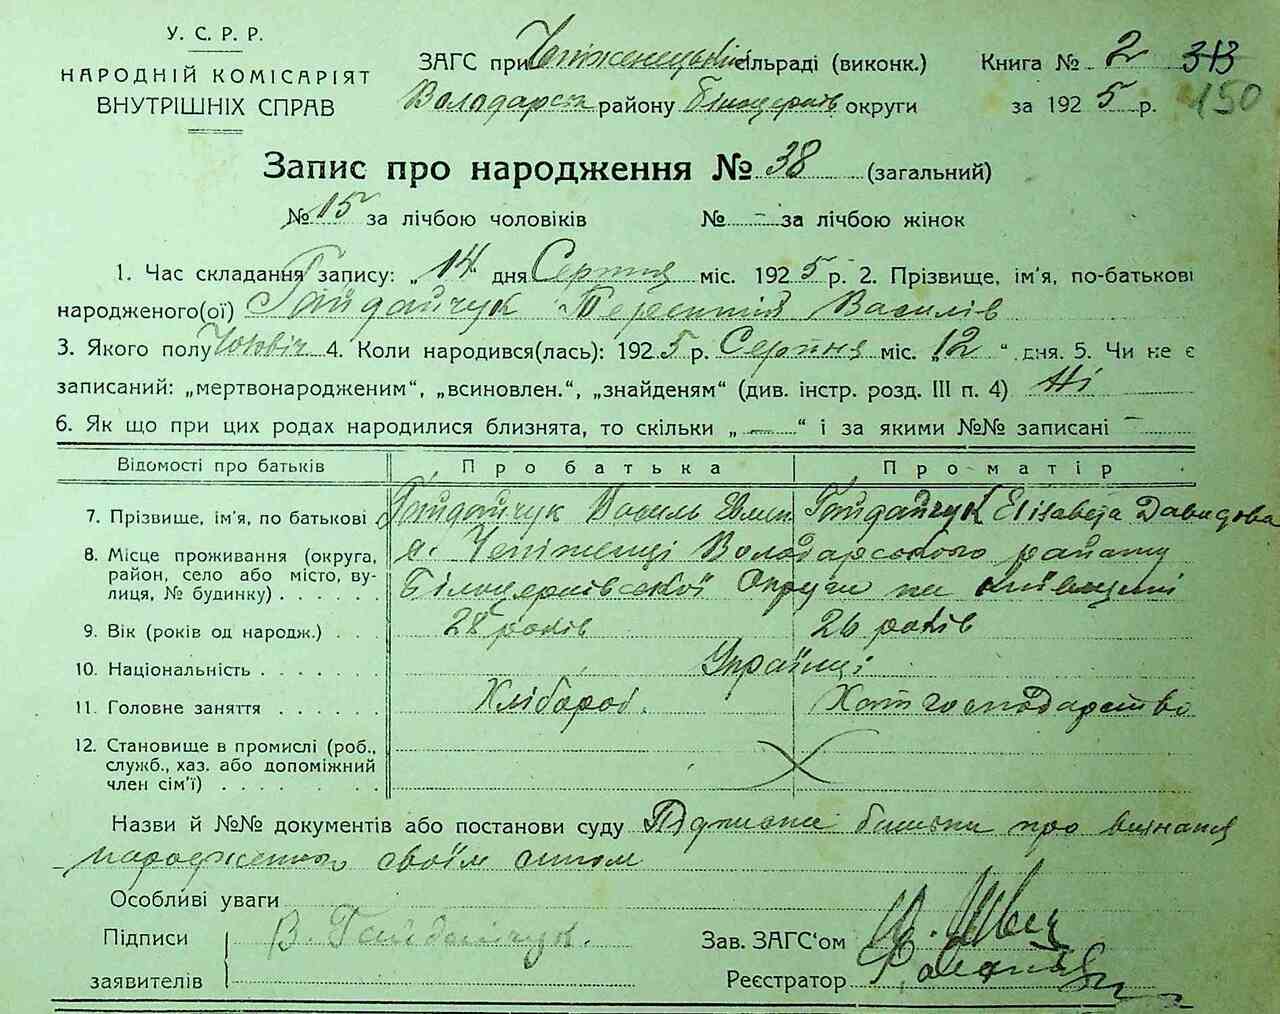 У. С. Р. Р.
НАРОДНІЙ КОМІСАРІЯТ
ВНУТРІШНІХ СПРАВ
ЗАГС при Чепіженецькій сільраді (виконк.) Книга № 2 313
Володарськ району Білоцерків округи за 1925 р. 150
Запис про народження № 38 (загальний)
№ 15 за лічбою чоловіків № – за лічбою жінок
1. Час складання запису: „14 дня Серпня міс. 1925 р. 2. Прізвище, ім'я, по-батькові
народженого(ої) Гайдайчук Терентій Василів
3. Якого полу Чоловіч 4. Коли народився(лась): 1925 р. Серпня міс. „12“ дня. 5. Чи не є
записаний: „мертвонародженим“, „всиновлен.“, „знайденям“ (див. інстр. розд. III п. 4) Ні
6. Як що при цих родах народилися близнята, то скільки „ — “ і за якими №№ записані –
Відомості про батьків Про батька Про матір
7. Прізвище, ім'я, по батькові Гайдайчук Василь Гайдайчук Elisaвета Давидова
8. Місце проживання (округа, район, село або місто, вулиця, № будинку) с. Чепіженці Володарського району
Білоцерківської Округи на Київщині
9. Вік (років од народж.) 28 років 26 років
10. Національність Українці
11. Головне заняття Хлібороб. Хатн господарство
12. Становище в промислі (роб.,
служб., хаз. або допоміжний
член сім'ї)
Назви й №№ документів або постанови суду Підписка батька про визнання
народженого своїм сином
Особливі уваги
Підписи В. Гайдайчук. Зав. ЗАГС'ом Швец
заявителів Реєстратор